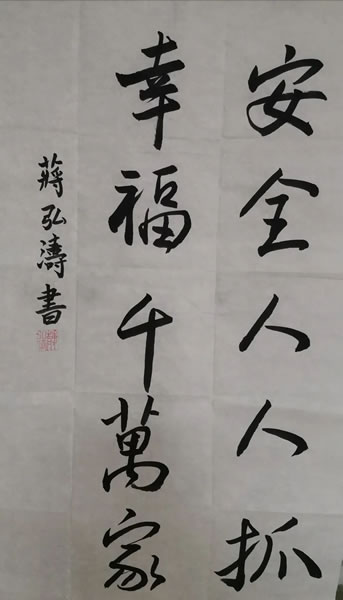 安全人人抓
幸福千萬家
蔣弘濤書